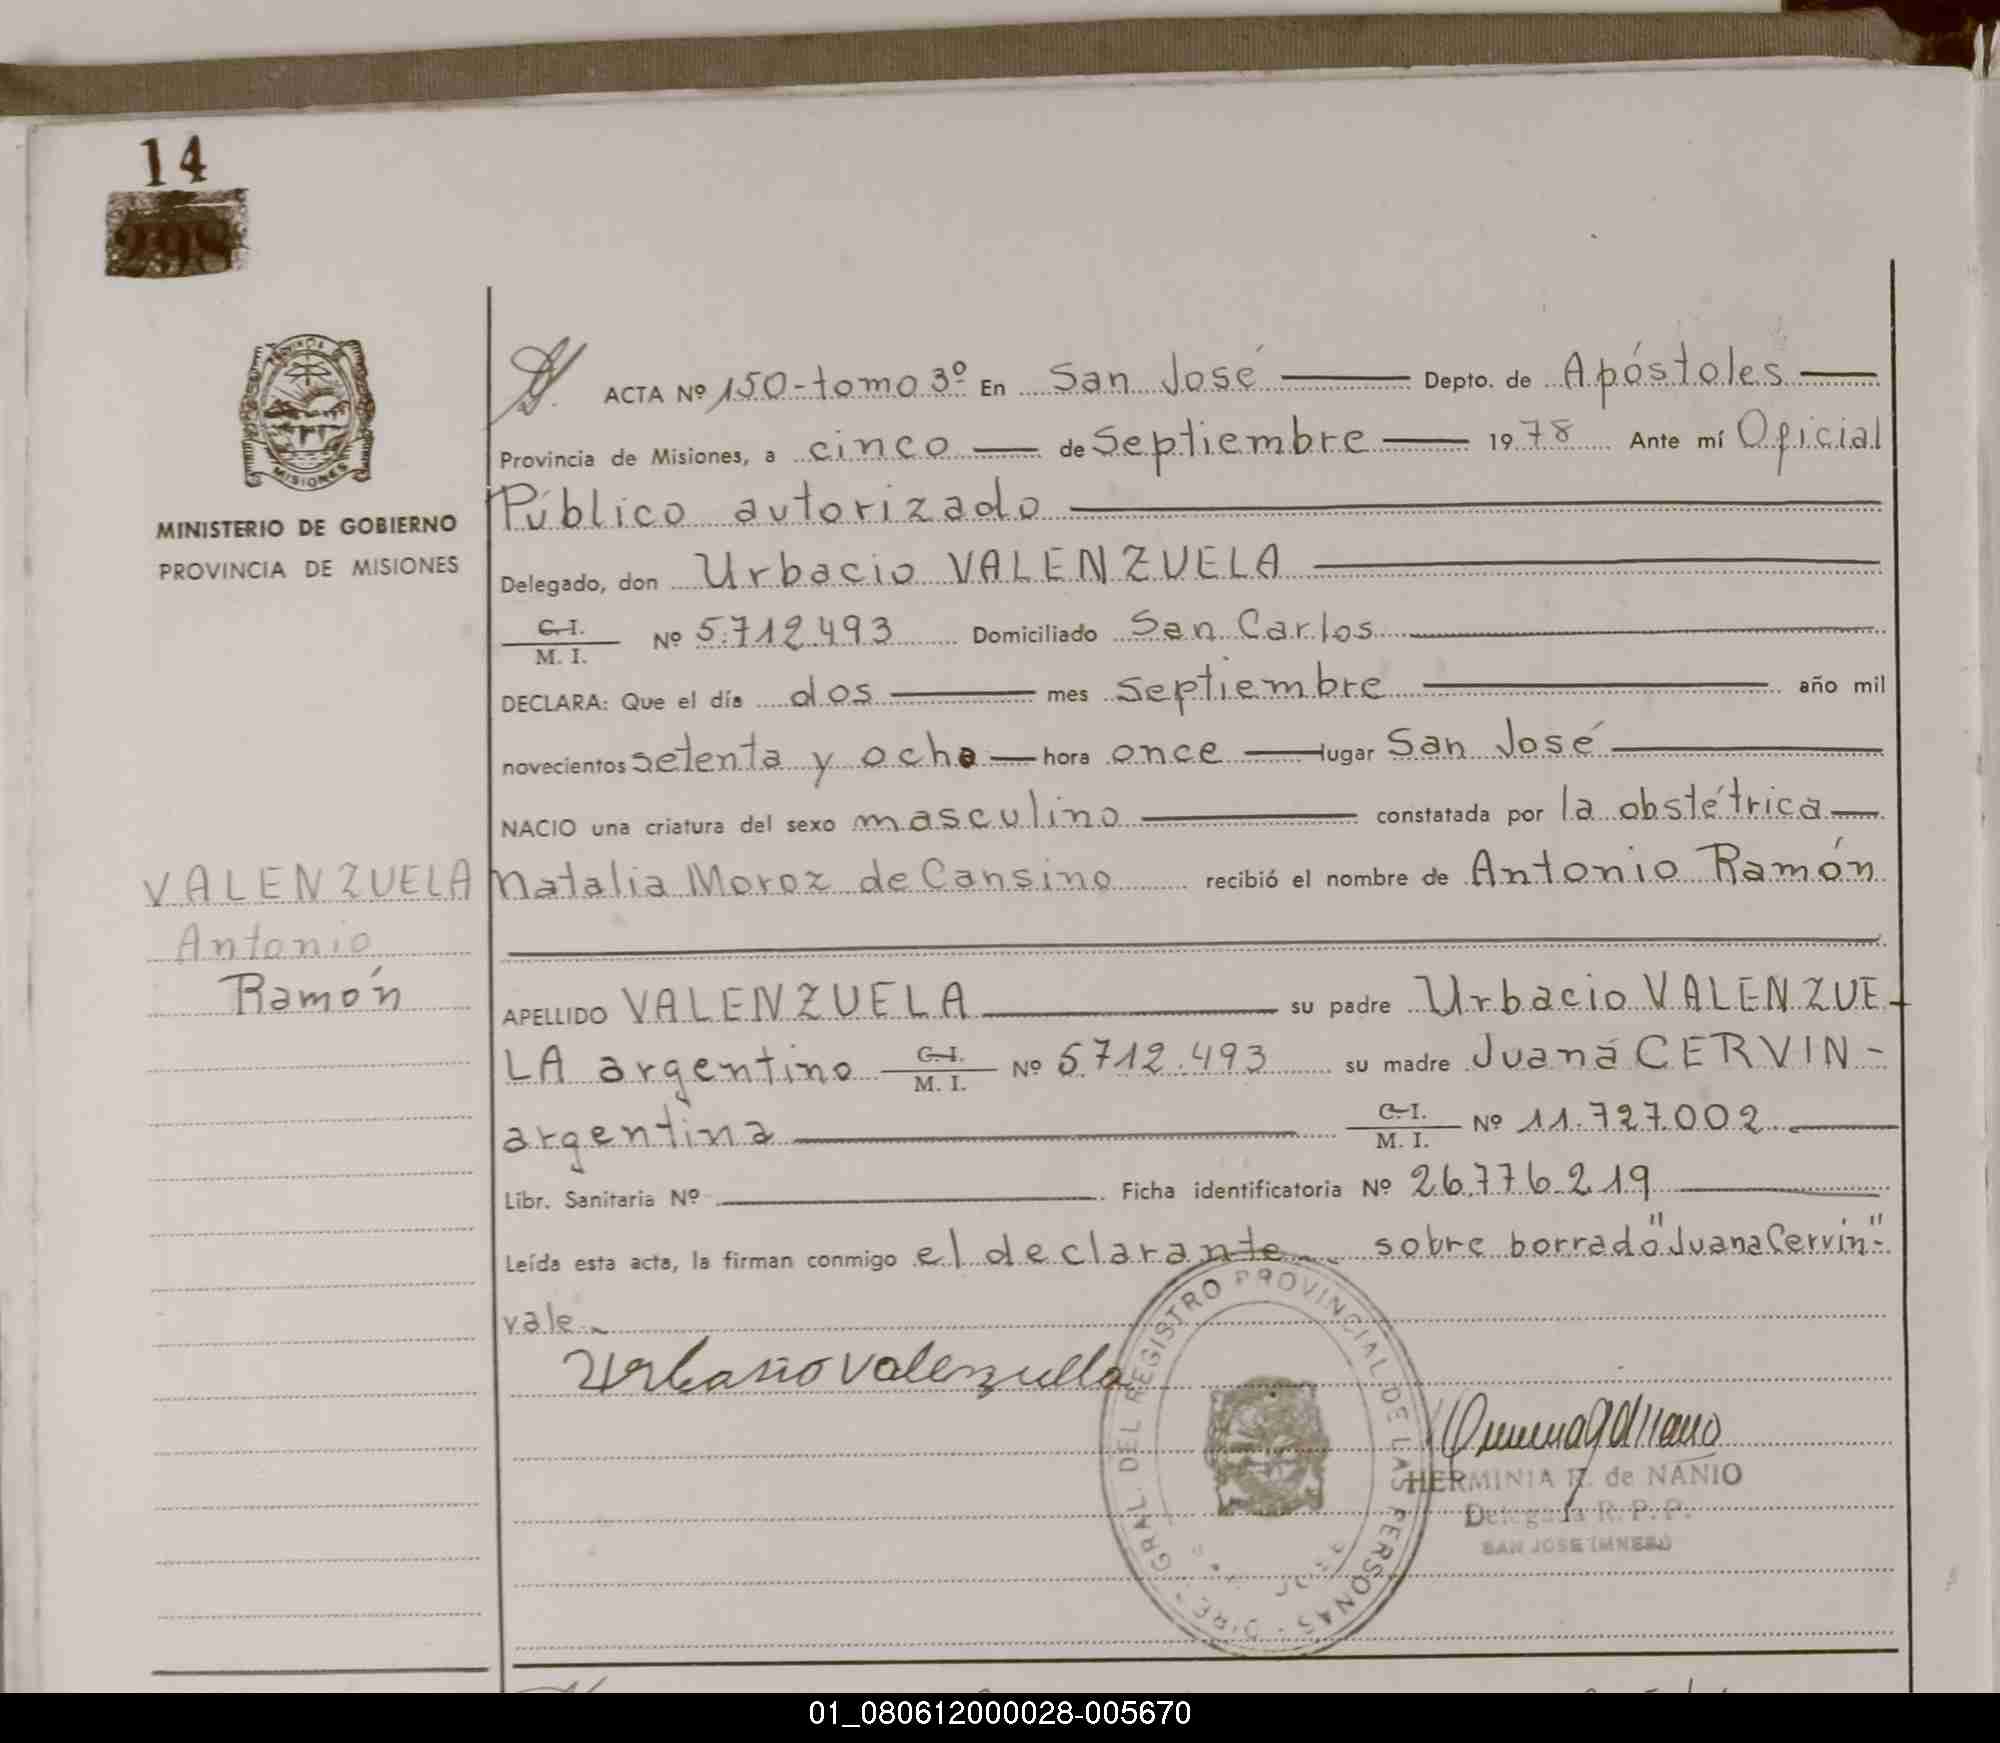 14
298
PROVINCIA DE
MISIONES
MINISTERIO DE GOBIERNO
PROVINCIA DE MISIONES
ACTA Nº 150-tomo 3º En San José Depto. de Apóstoles
Provincia de Misiones, a cinco de Septiembre 1978 Ante mí Oficial
Público autorizado
Delegado, don Urbacio VALENZUELA
C. I.
M. I. Nº 5.712.493 Domiciliado San Carlos
DECLARA: Que el día dos mes septiembre año mil
novecientos setenta y ocho hora once lugar San José
NACIO una criatura del sexo masculino constatada por la obstétrica
Natalia Moroz de Cansino recibió el nombre de Antonio Ramón
VALENZUELA
Antonio
Ramón
APELLIDO VALENZUELA su padre Urbacio VALENZUE-
LA argentino C. I. M. I. Nº 5.712.493 su madre Juana CERVIN-
argentina C. I. M. I. Nº 11.727.002
Libr. Sanitaria Nº Ficha identificatoria Nº 26.776.219
Leída esta acta, la firman conmigo el declarante sobre borrado "Juana Cervin"-
vale-
Urbasio Valenzuella
HERMINIA R. de NANIO
Delegada R. P. P.
SAN JOSE (MNES.)
GRAL. DEL REGISTRO PROVINCIAL DE LAS PERSONAS
01_080612000028-005670